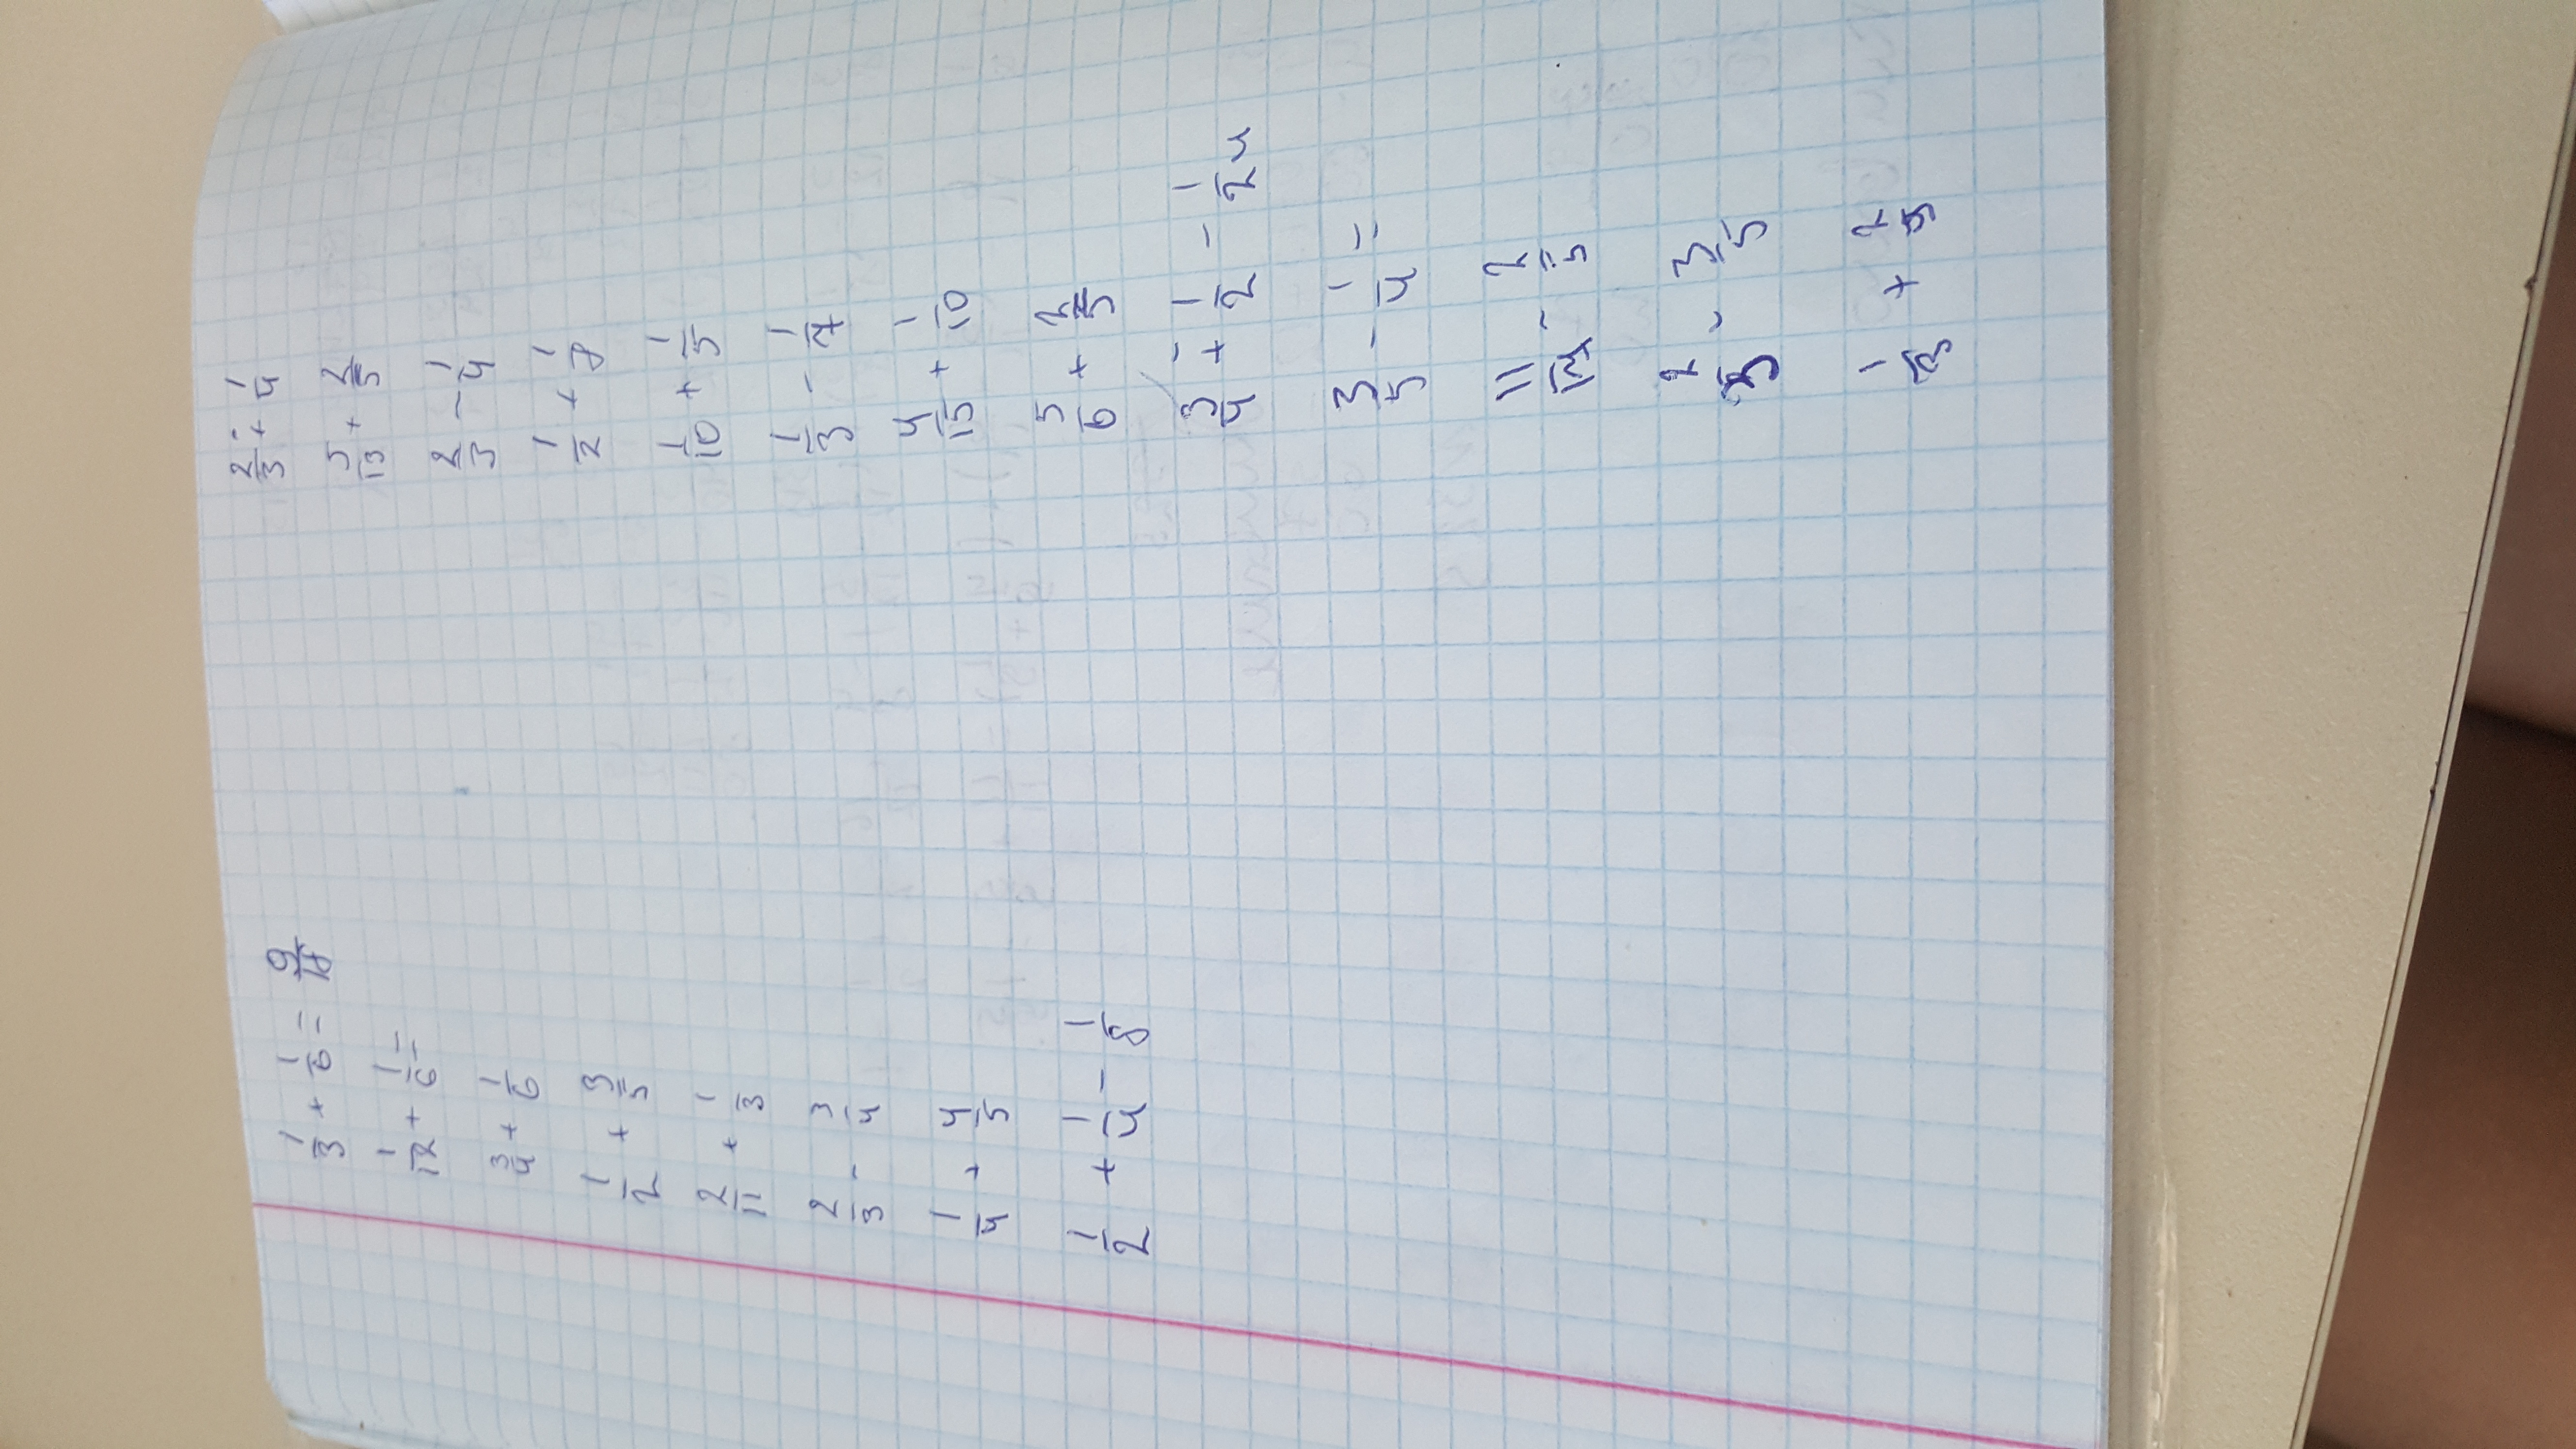 1/3 + 1/6 = 9/18
1/12 + 1/6 =
3/4 + 1/6
1/2 + 3/5
2/11 + 1/3
2/3 - 3/4
1/4 + 4/5
1/2 + 1/4 - 1/8
2/3 + 1/4
5/13 +
2/3 - 1/4
1/2 + 1/8
1/10 + 1/5
1/3 - 1/7
4/15 + 1/10
5/6 +
3/4 + 1/2 - 1/24
3/5 - 1/4 =
- 2/5
- 3/5